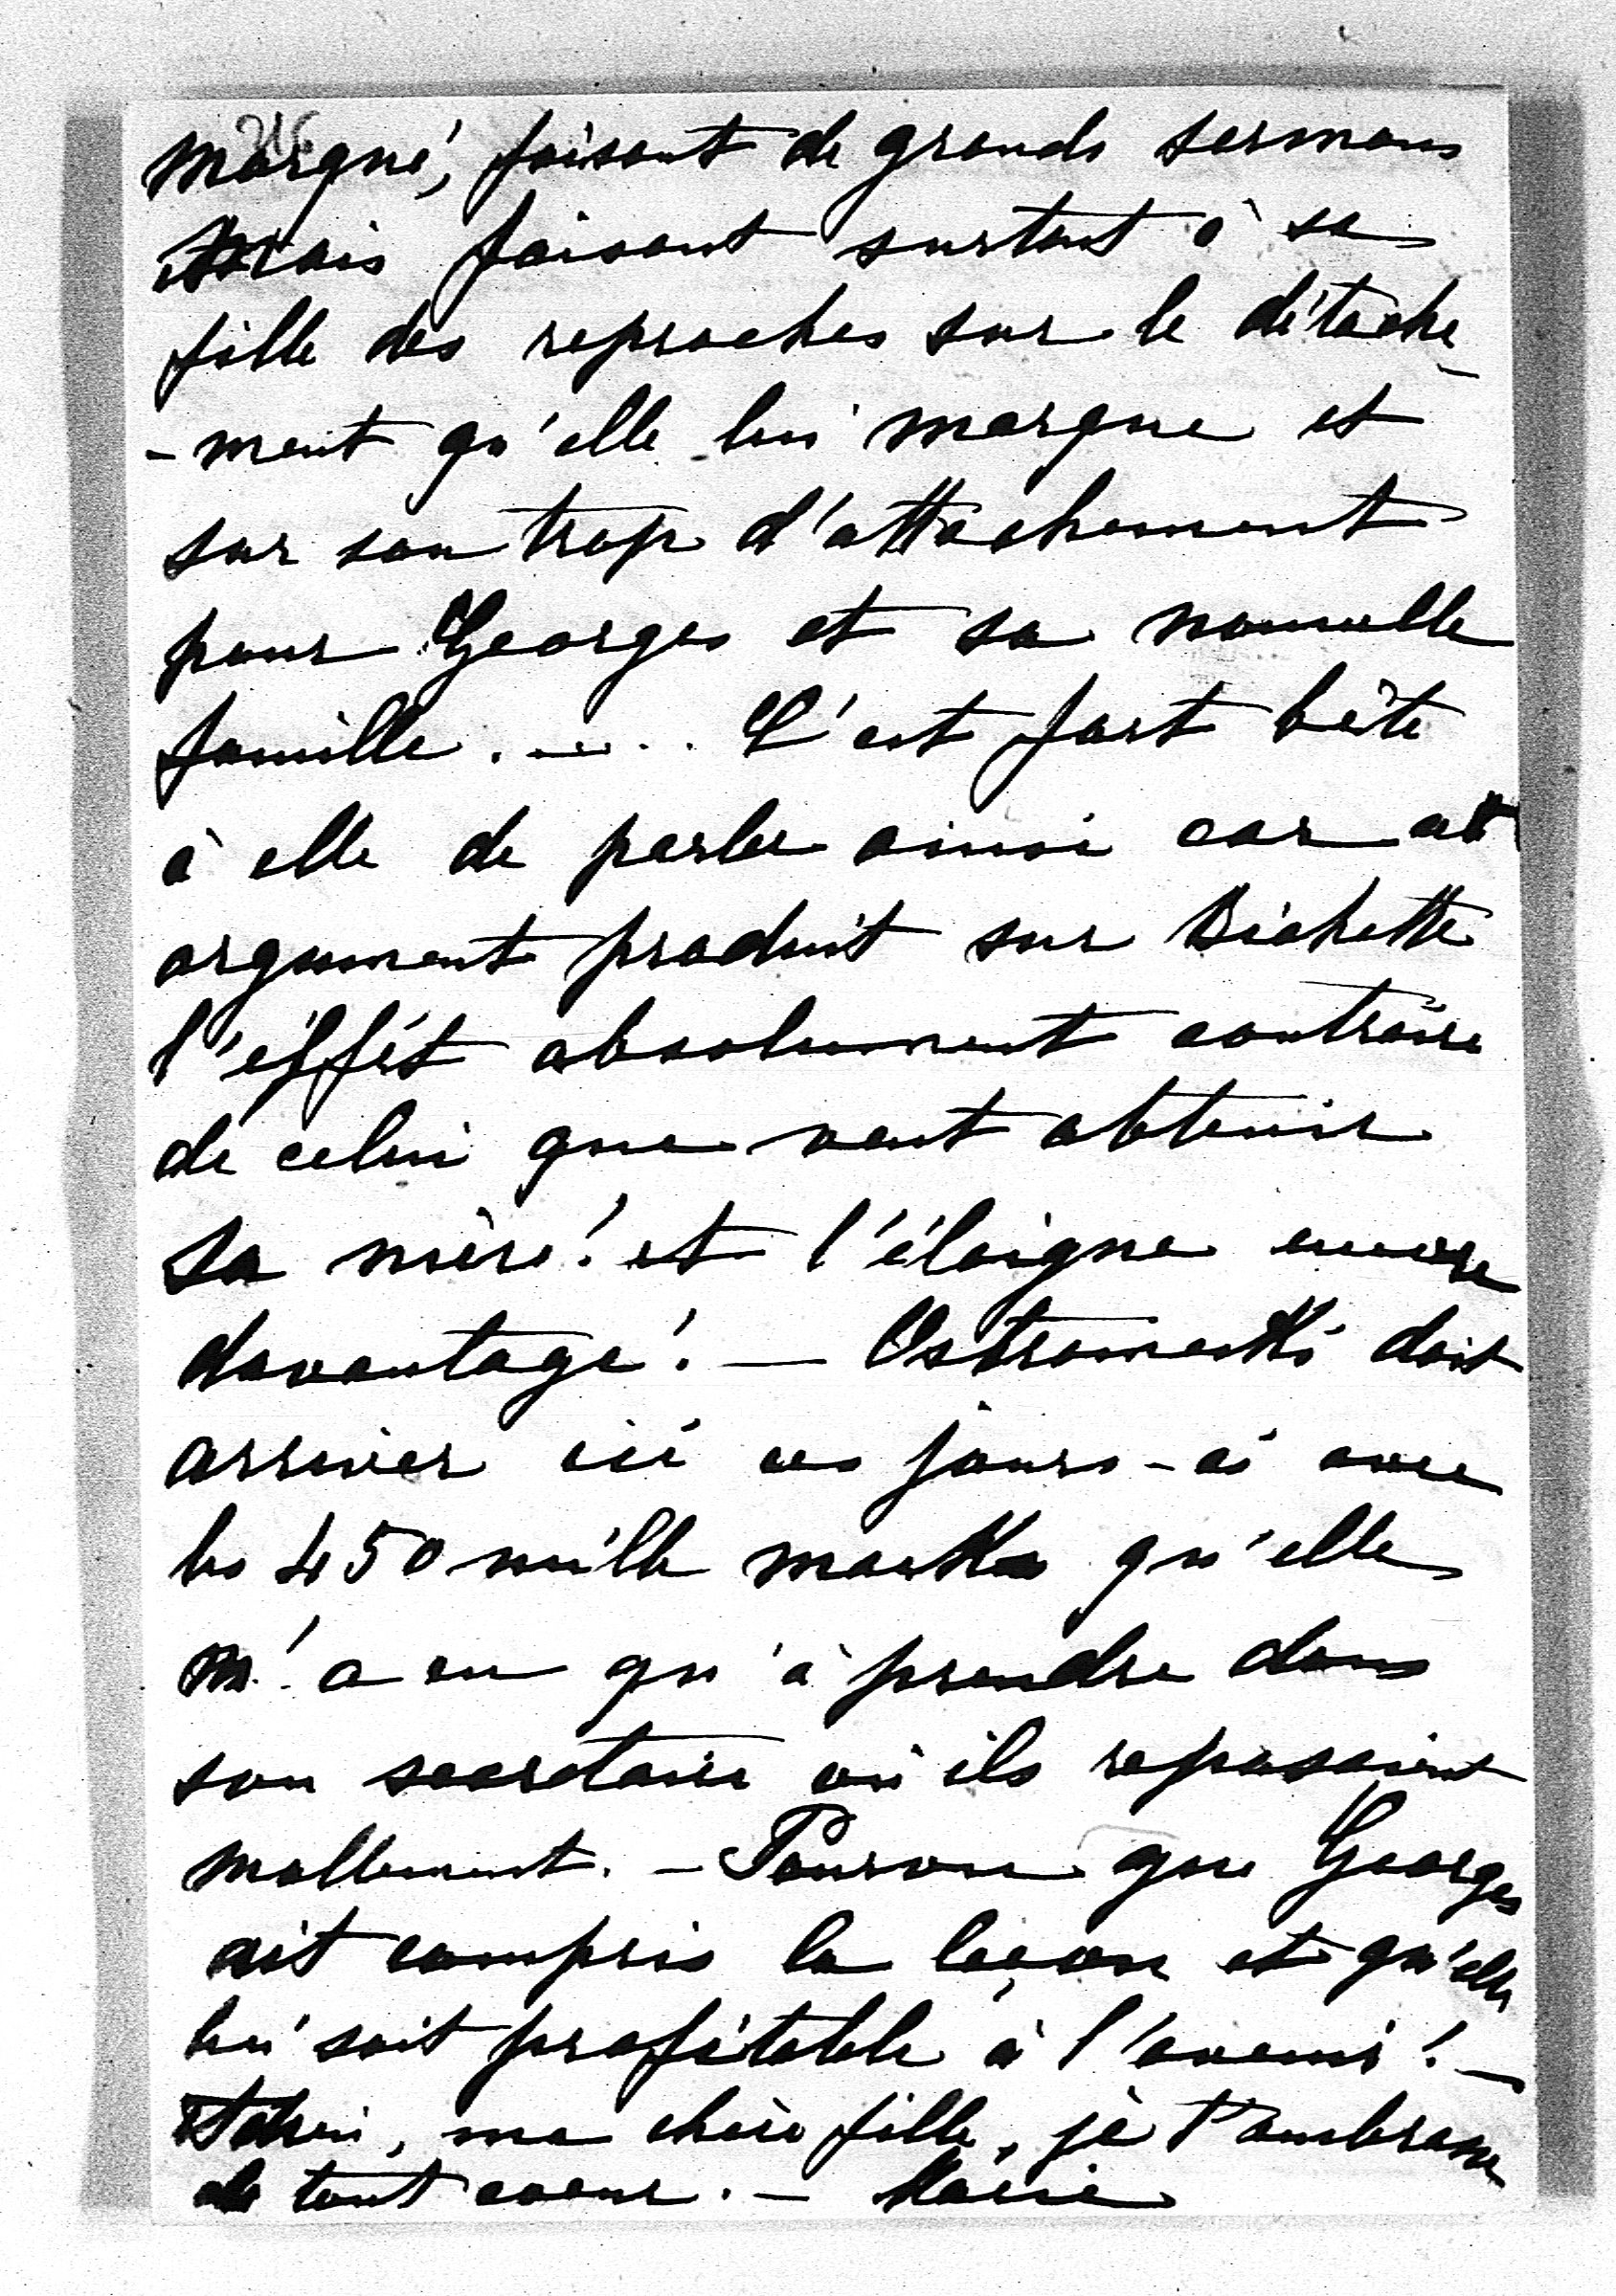 marqué, faisant de grands sermons
mais faisant surtout à sa
fille des reproches sur le détache-
-ment qu'elle lui marque et
sur son trop d'attachement
pour Georges et sa nouvelle
famille..... C'est fort bête
à elle de parler ainsi car cet
argument produit sur Bichette
l'effét absolument contraire
de celui que veut obtenir
sa mère! et l'éloigne encore
davantage! — doit
arriver ici ces jours-ci avec
les 450 mille marks qu'elle
n'a eu qu'à prendre dans
son secrétaire où ils reposaient
mollement. — Pourvu que Georges
ait compris la leçon et qu'elle
lui soit profitable à l'avenir! —
Adieu, ma chère fille, je t'embrasse
de tout coeur. — Marie